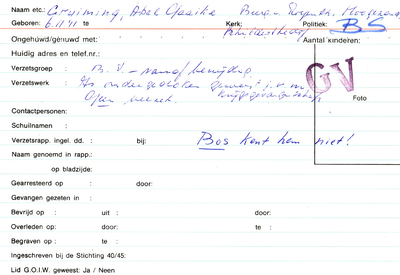 Naam etc.:
Geboren: 6.11.41 te Kerk: Politiek: BS
Ongehuwd/gehuwd met: Aantal kinderen:
Huidig adres en telef.nr.:
Verzetsgroep : B.S. - vanaf bevrijding GV
Verzetswerk : Is ondergedoken geweest i.v.m. Foto
Contactpersonen:
Schuilnaam :
Verzetsrapp. ingel. dd. : bij: Bos kent hem niet!
Naam genoemd in rapp.:
op bladzijde:
Gearresteerd op : door:
Gevangen gezeten in :
Bevrijd op : uit : door:
Overleden op : door: te :
Begraven op : te :
Ingeschreven bij de Stichting 40/45:
Lid G.O.I.W. geweest: Ja / Neen